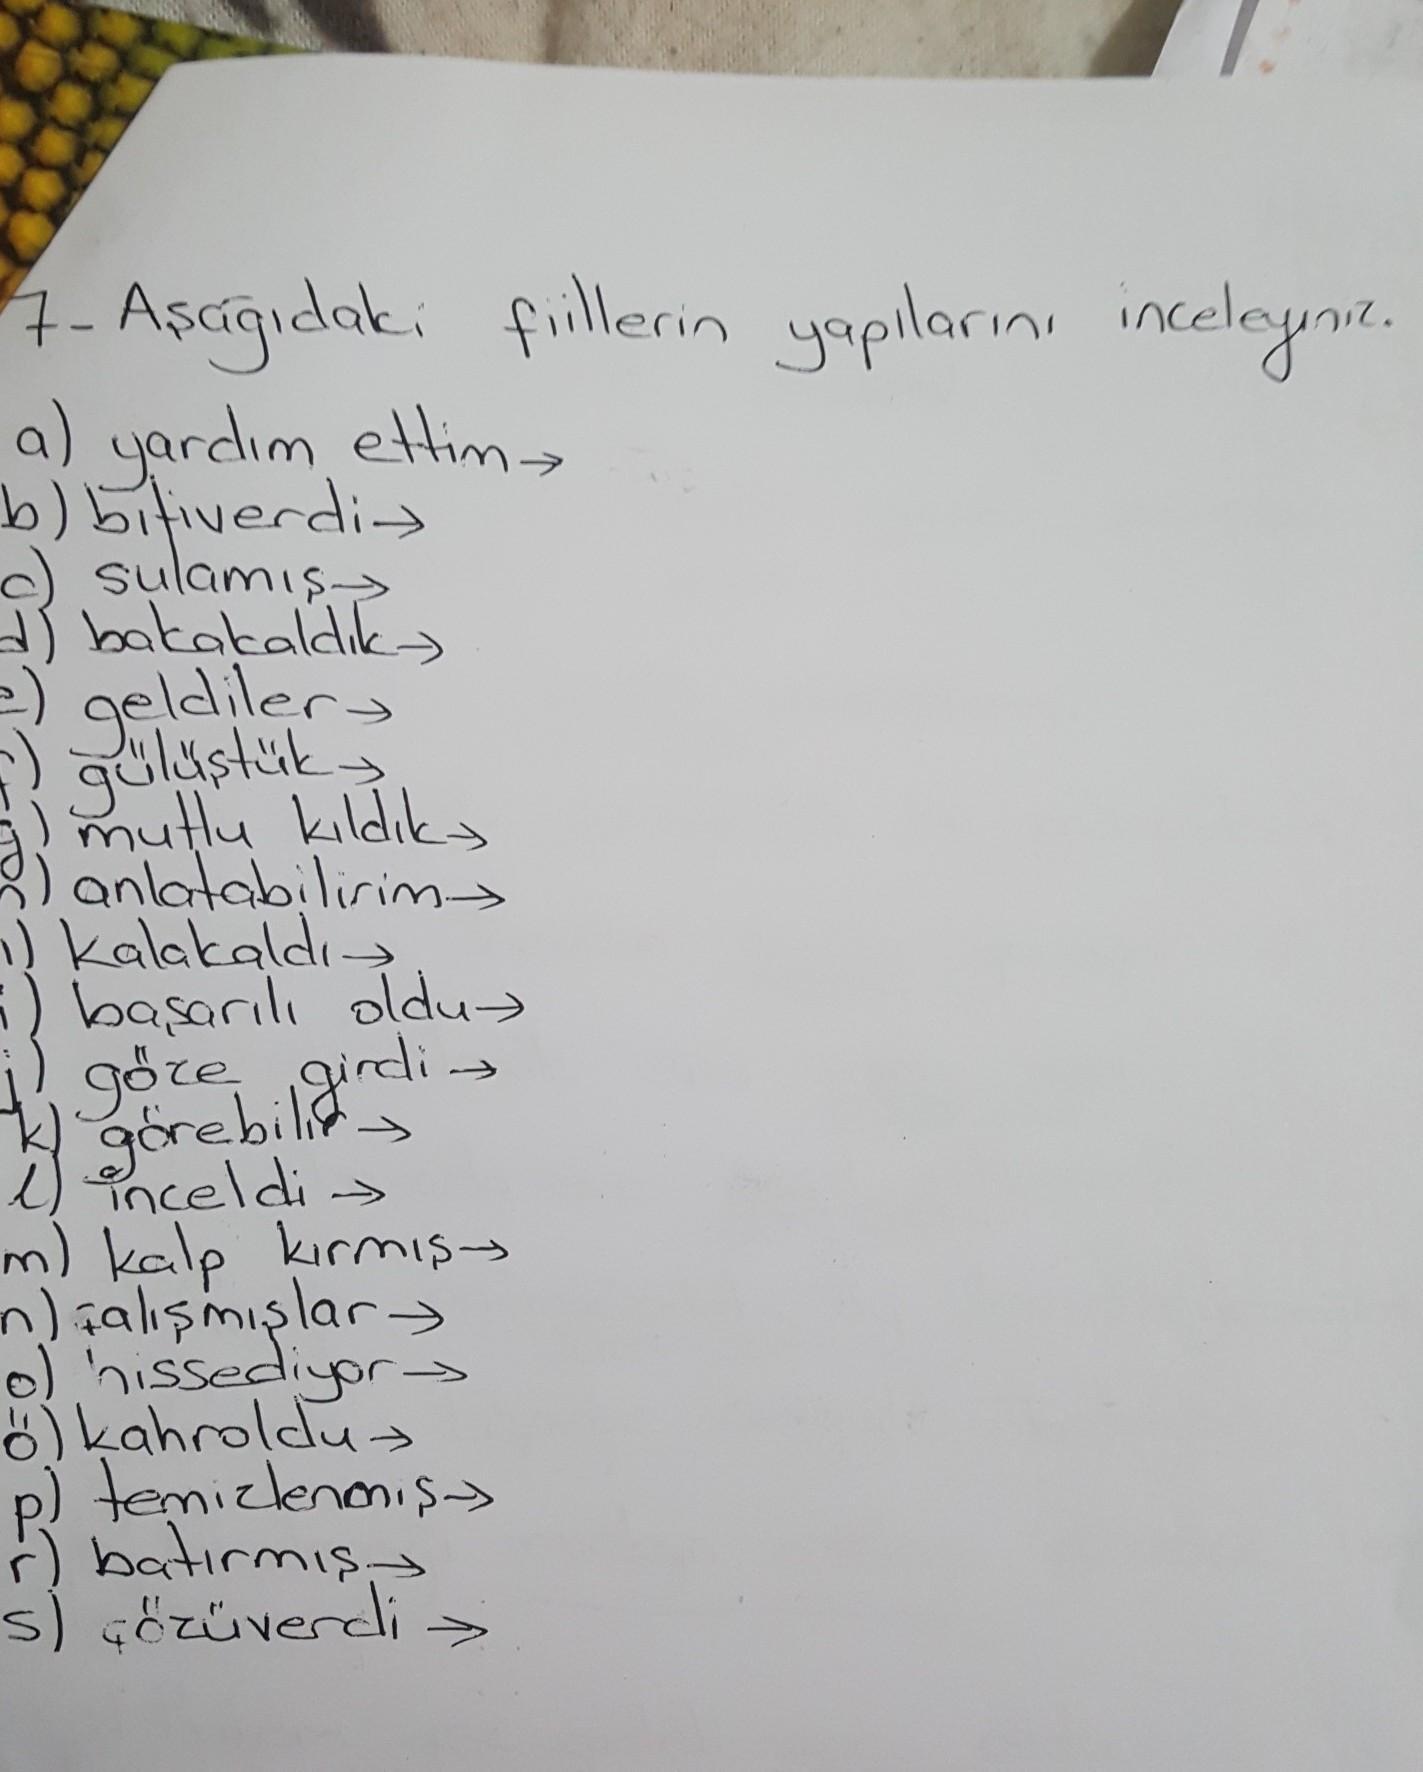 7- Aşağıdaki fiillerin yapılarını inceleyiniz.
a) yardım ettim →
b) bitiverdi →
c) sulamış →
d) bakakaldık →
e) geldiler →
f) gülüştük →
g) mutlu kıldık →
h) anlatabilirim →
ı) kalakaldı →
i) başarılı oldu →
j) göze girdi →
k) görebilir →
l) inceldi →
m) kalp kırmış →
n) çalışmışlar →
o) hissediyor →
ö) kahroldu →
p) temizlenmiş →
r) batırmış →
s) çözüverdi →